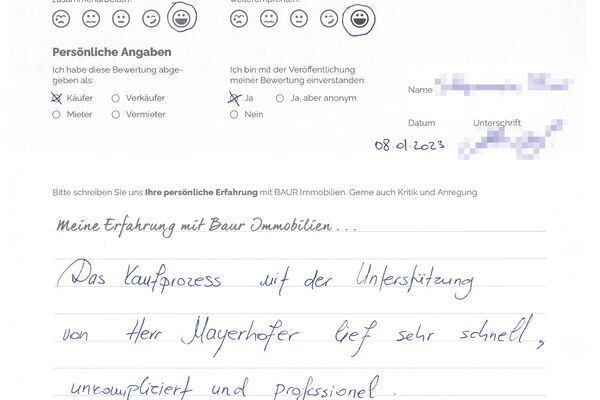 zusammenarbeiten.
weiterempfehlen.
Persönliche Angaben
Ich habe diese Bewertung abge-
geben als:
Käufer Verkäufer
Mieter Vermieter
Ich bin mit der Veröffentlichung
meiner Bewertung einverstanden.
Ja Ja, aber anonym
Nein
Name
Datum Unterschrift
08.01.2023
Bitte schreiben Sie uns Ihre persönliche Erfahrung mit BAUR Immobilien. Gerne auch Kritik und Anregung.
Meine Erfahrung mit Baur Immobilien...
Das Kaufprozess mit der Unterstützung
von Herr Mayerhofer lief sehr schnell,
unkompliciert und professionel.